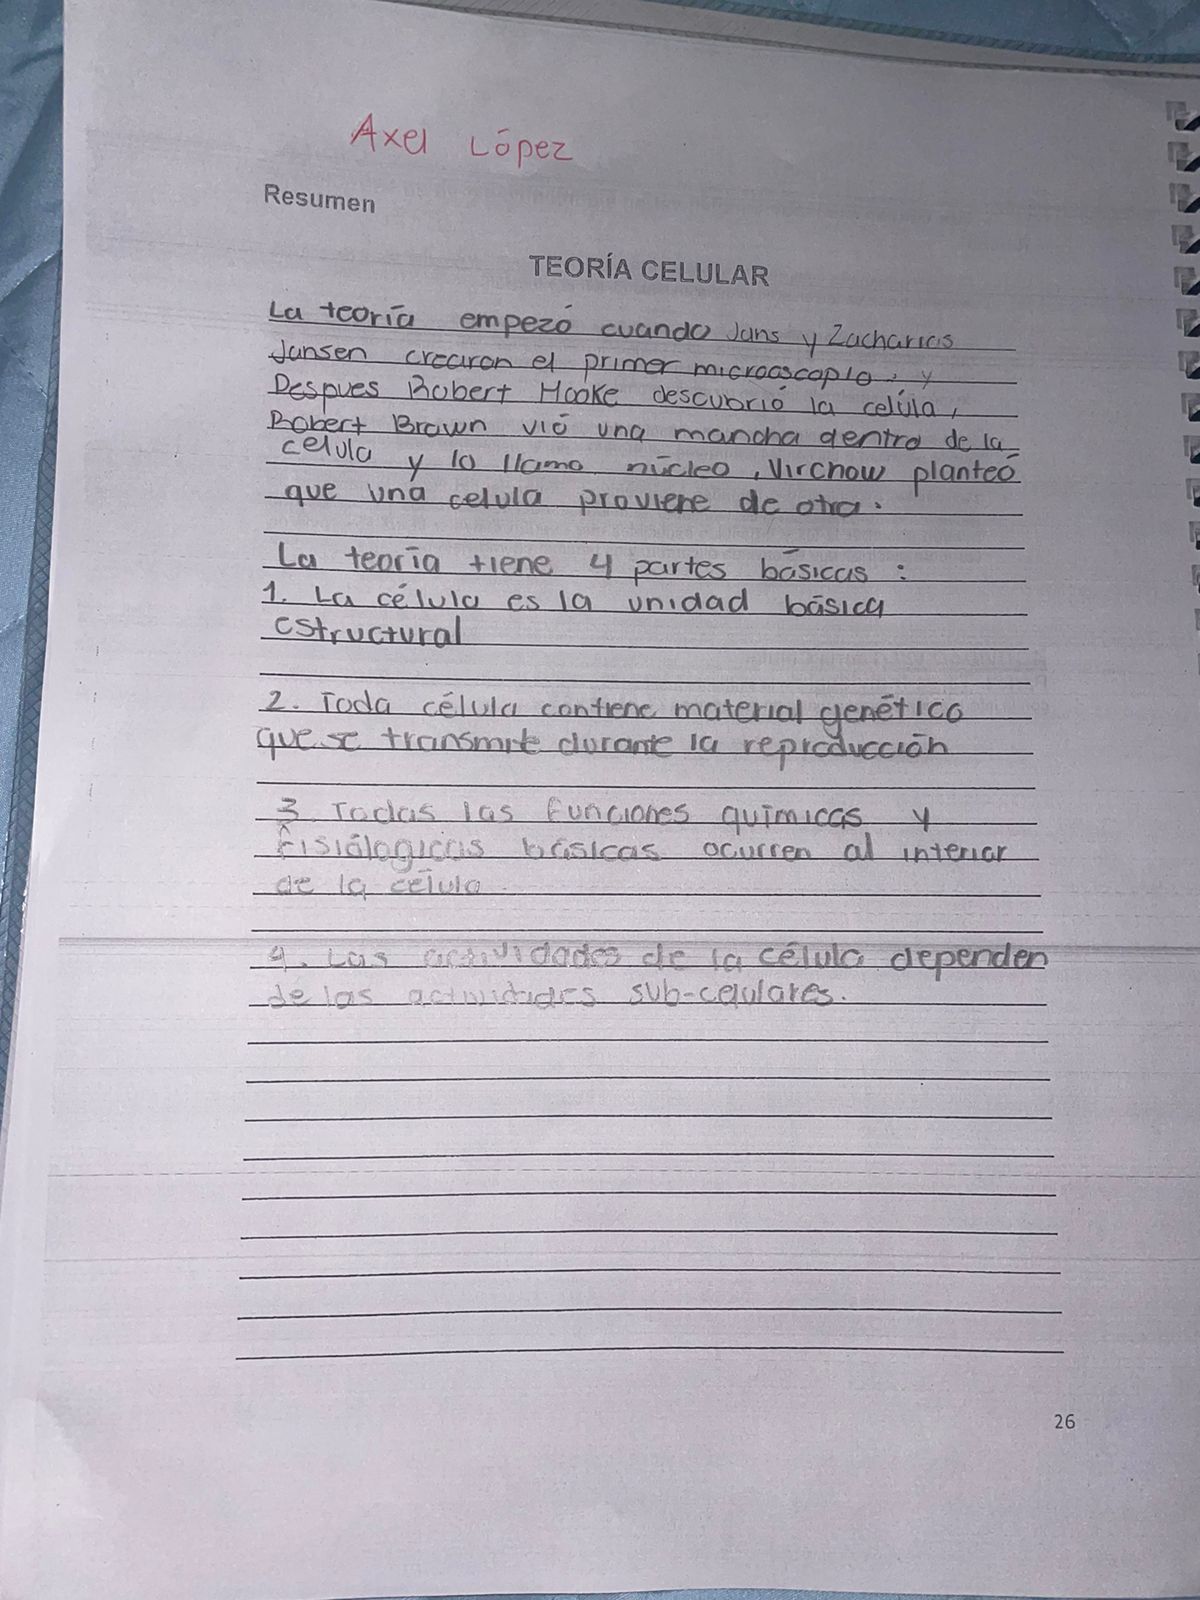 Axel López
Resumen
TEORÍA CELULAR
La teoría empezó cuando Jans y Zacharias
Jansen crearon el primer microoscopio, y
Despues Robert Hooke descubrió la celúla,
Robert Brown vió una mancha dentro de la
celula y lo llamo núcleo, Virchow planteó
que una celula proviene de otra.
La teoría tiene 4 partes básicas:
1. La célula es la unidad básica
estructural
2. Toda célula contiene material genético
que se transmite durante la reproducción
3. Todas las funciones químicas y
fisiólogicas básicas ocurren al interior
de la célula.
4. Las actividades de la célula dependen
de las actividades sub-celulares.
26